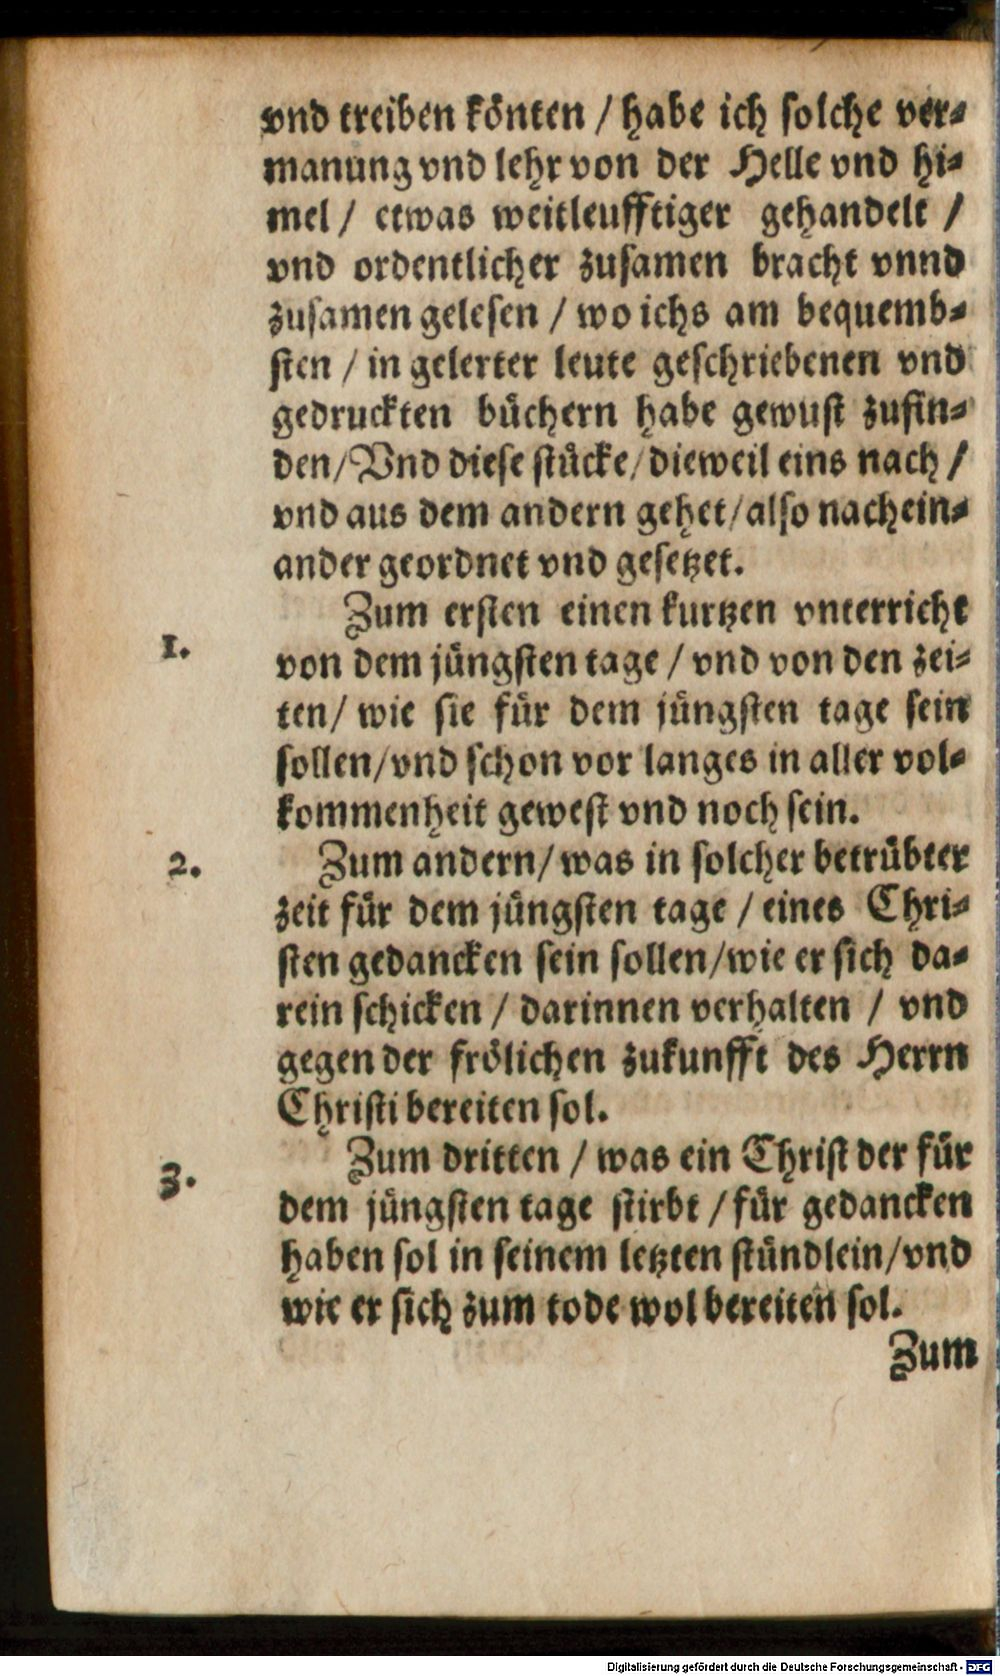 vnd treiben könten / habe ich solche ver-
manung vnd lehr von der Helle vnd hi-
mel / etwas weitleufftiger gehandelt /
vnd ordentlicher zusamen bracht vnnd
zusamen gelesen / wo ichs am bequemb-
sten / in gelerter leute geschriebenen vnd
gedruckten büchern habe gewust zufin-
den / Vnd diese stücke / dieweil eins nach /
vnd aus dem andern gehet / also nachein-
ander geordnet vnd gesetzet.
Zum ersten einen kurtzen vnterricht
1.
von dem jüngsten tage / vnd von den zei-
ten / wie sie für dem jüngsten tage sein
sollen / vnd schon vor langes in aller vol-
kommenheit gewest vnd noch sein.
2. Zum andern / was in solcher betrübter
zeit für dem jüngsten tage / eines Chri-
sten gedancken sein sollen / wie er sich da-
rein schicken / darinnen verhalten / vnd
gegen der frölichen zukunfft des Herrn
Christi bereiten sol.
Zum dritten / was ein Christ der für
3.
dem jüngsten tage stirbt / für gedancken
haben sol in seinem letzten stündlein / vnd
wie er sich zum tode wol bereiten sol.
Zum
Digitalisierung gefördert durch die Deutsche Forschungsgemeinschaft - DFG